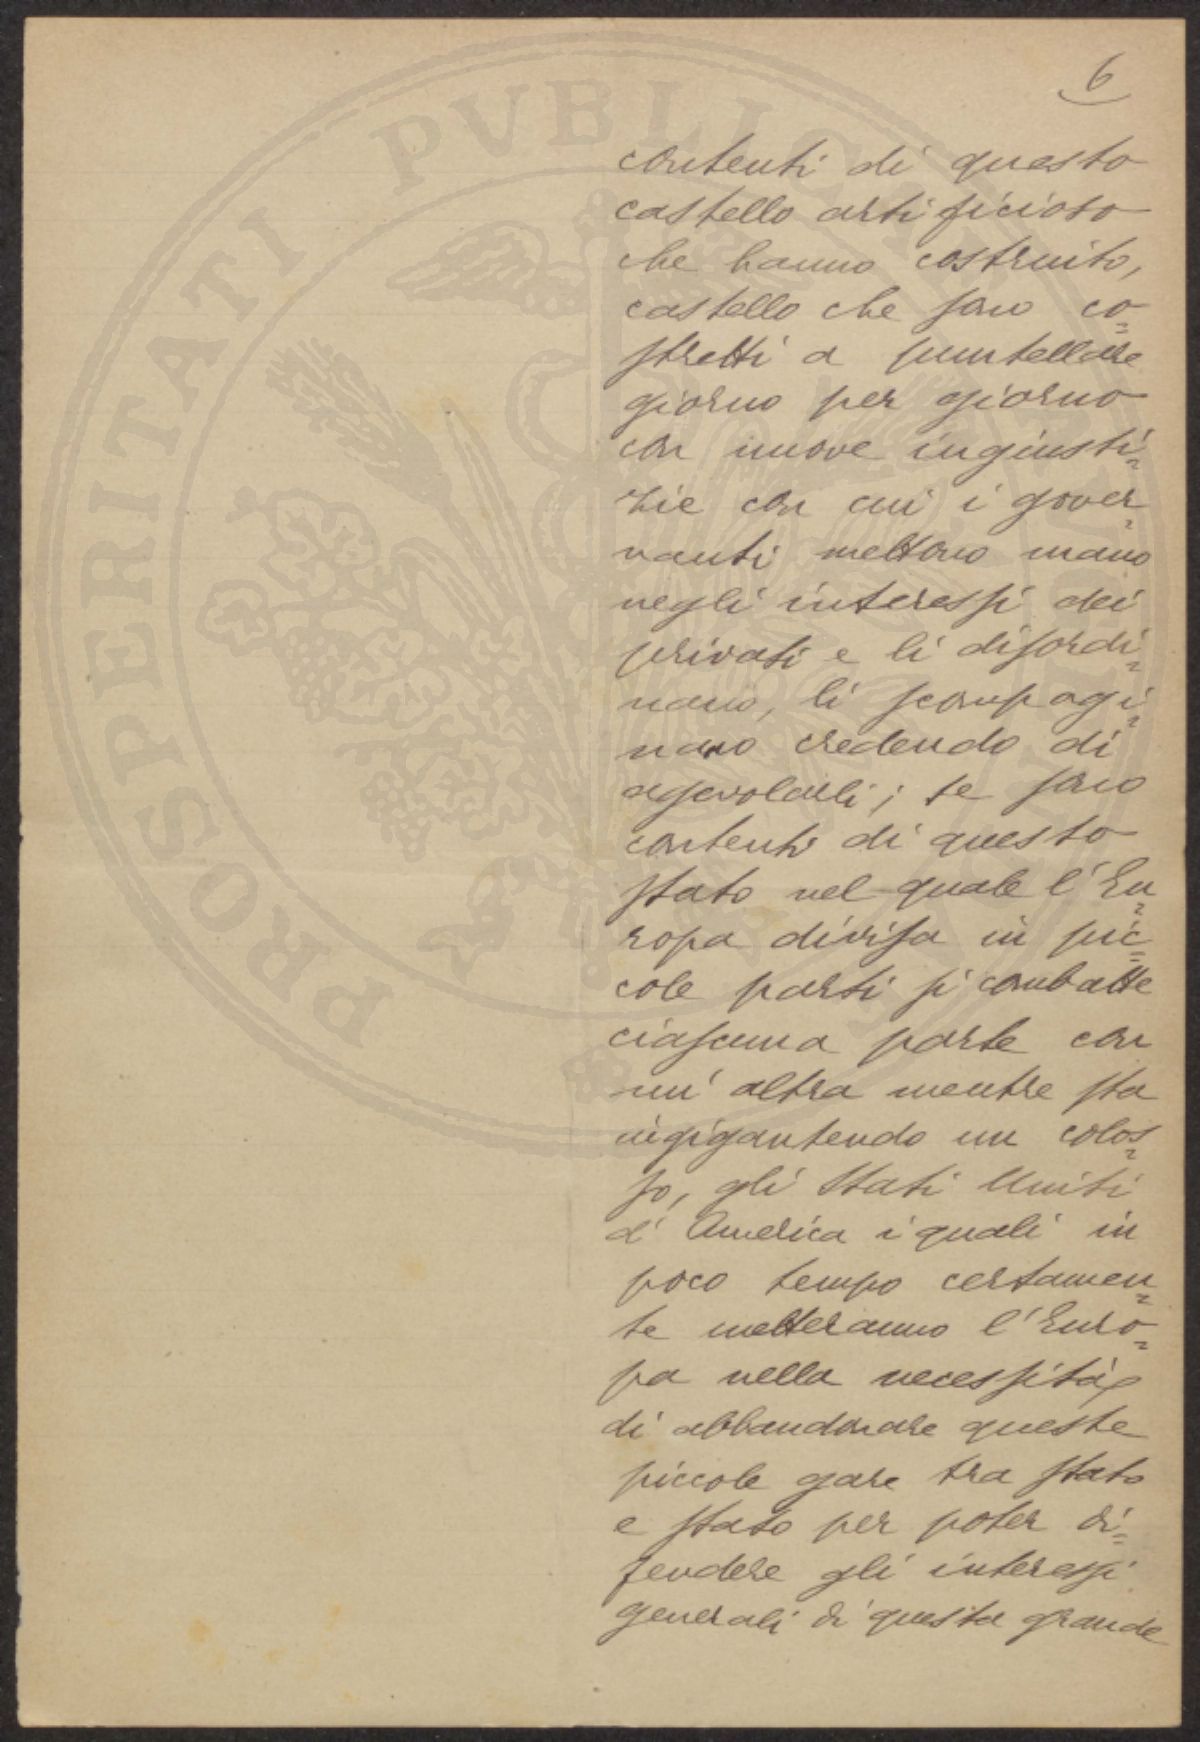 6
contenti di questo
castello artificioso
che hanno costruito,
castello che sono co=
stretti a puntellare
giorno per giorno
con nuove ingiusti=
zie con cui i gover=
nanti mettono mano
negli interessi dei
privati e li disordi=
nano, li scompagi=
nano credendo di
agevolarli; se sono
contenti di questo
stato nel quale l'Eu=
ropa divisa in pic=
cole parti si combatte
ciascuna parte con
un'altra mentre sta
ingigantendo un colos=
so, gli Stati Uniti
d'America i quali in
poco tempo certamen=
te metteranno l'Euro=
pa nella necessità
di abbandonare queste
piccole gare tra stato
e stato per poter di=
fendere gli interessi
generali di questa grande
PROSPERITATI PVBLICAE